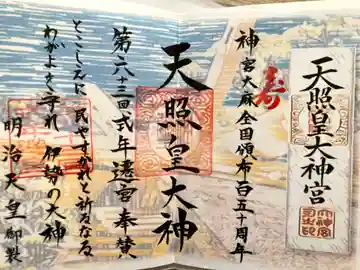 天照皇大神宮
寿
神宮大麻全国頒布百五十周年
天照皇大神
第六十三回式年遷宮奉賛
とこしへに民やすかれと祈るなる
わがよを守れ 伊勢の大神
明治天皇御製